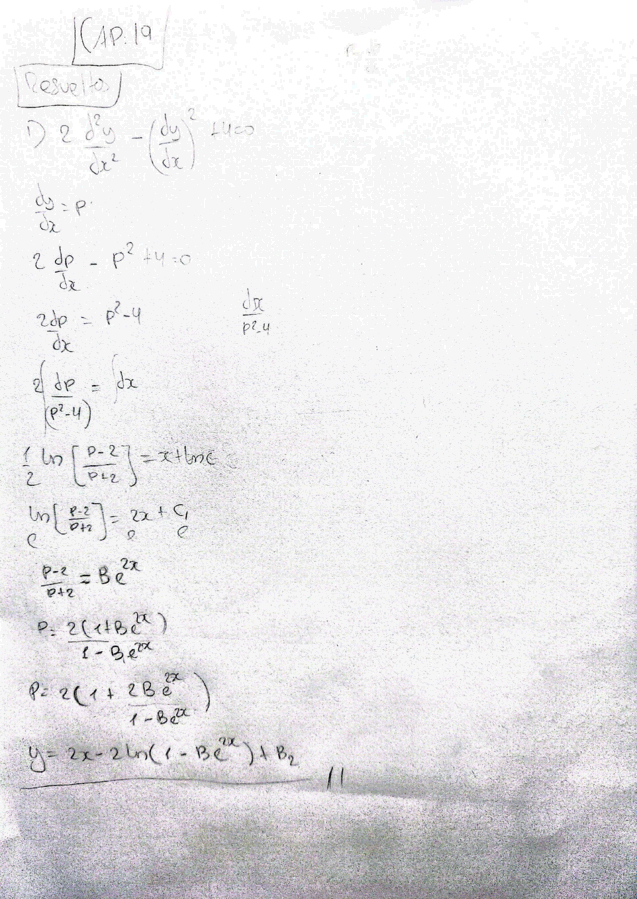 CAP. 19
Resueltos
1) 2 d²y/dx² - (dy/dx)² + 4 = 0
dy/dx = p
2 dp/dx - p² + 4 = 0
2dp/dx = p² - 4    dx/p²-4
2∫ dp/(p²-4) = ∫dx
1/2 ln [p-2/p+2] = x + lnc
e^ln[p-2/p+2] = e^2x + e^C₁
p-2/p+2 = Be^2x
P = 2(1+Be^2x)/1-Be^2x
P = 2(1 + 2Be^2x/1-Be^2x)
y = 2x - 2ln(1 - Be^2x) + B₂ //